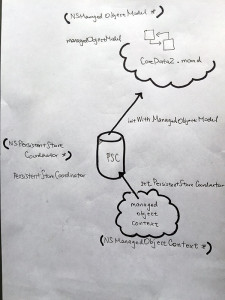 (NSManagedObjectModel *)
managedObjectModel
CoreData2.momd
initWithManagedObjectModel
(NSPersistentStore
Coordinator *)
PSC
PersistentStoreCoordinator
set PersistentStoreCoordinator
managed
object
context
(NSManagedObjectContext *)